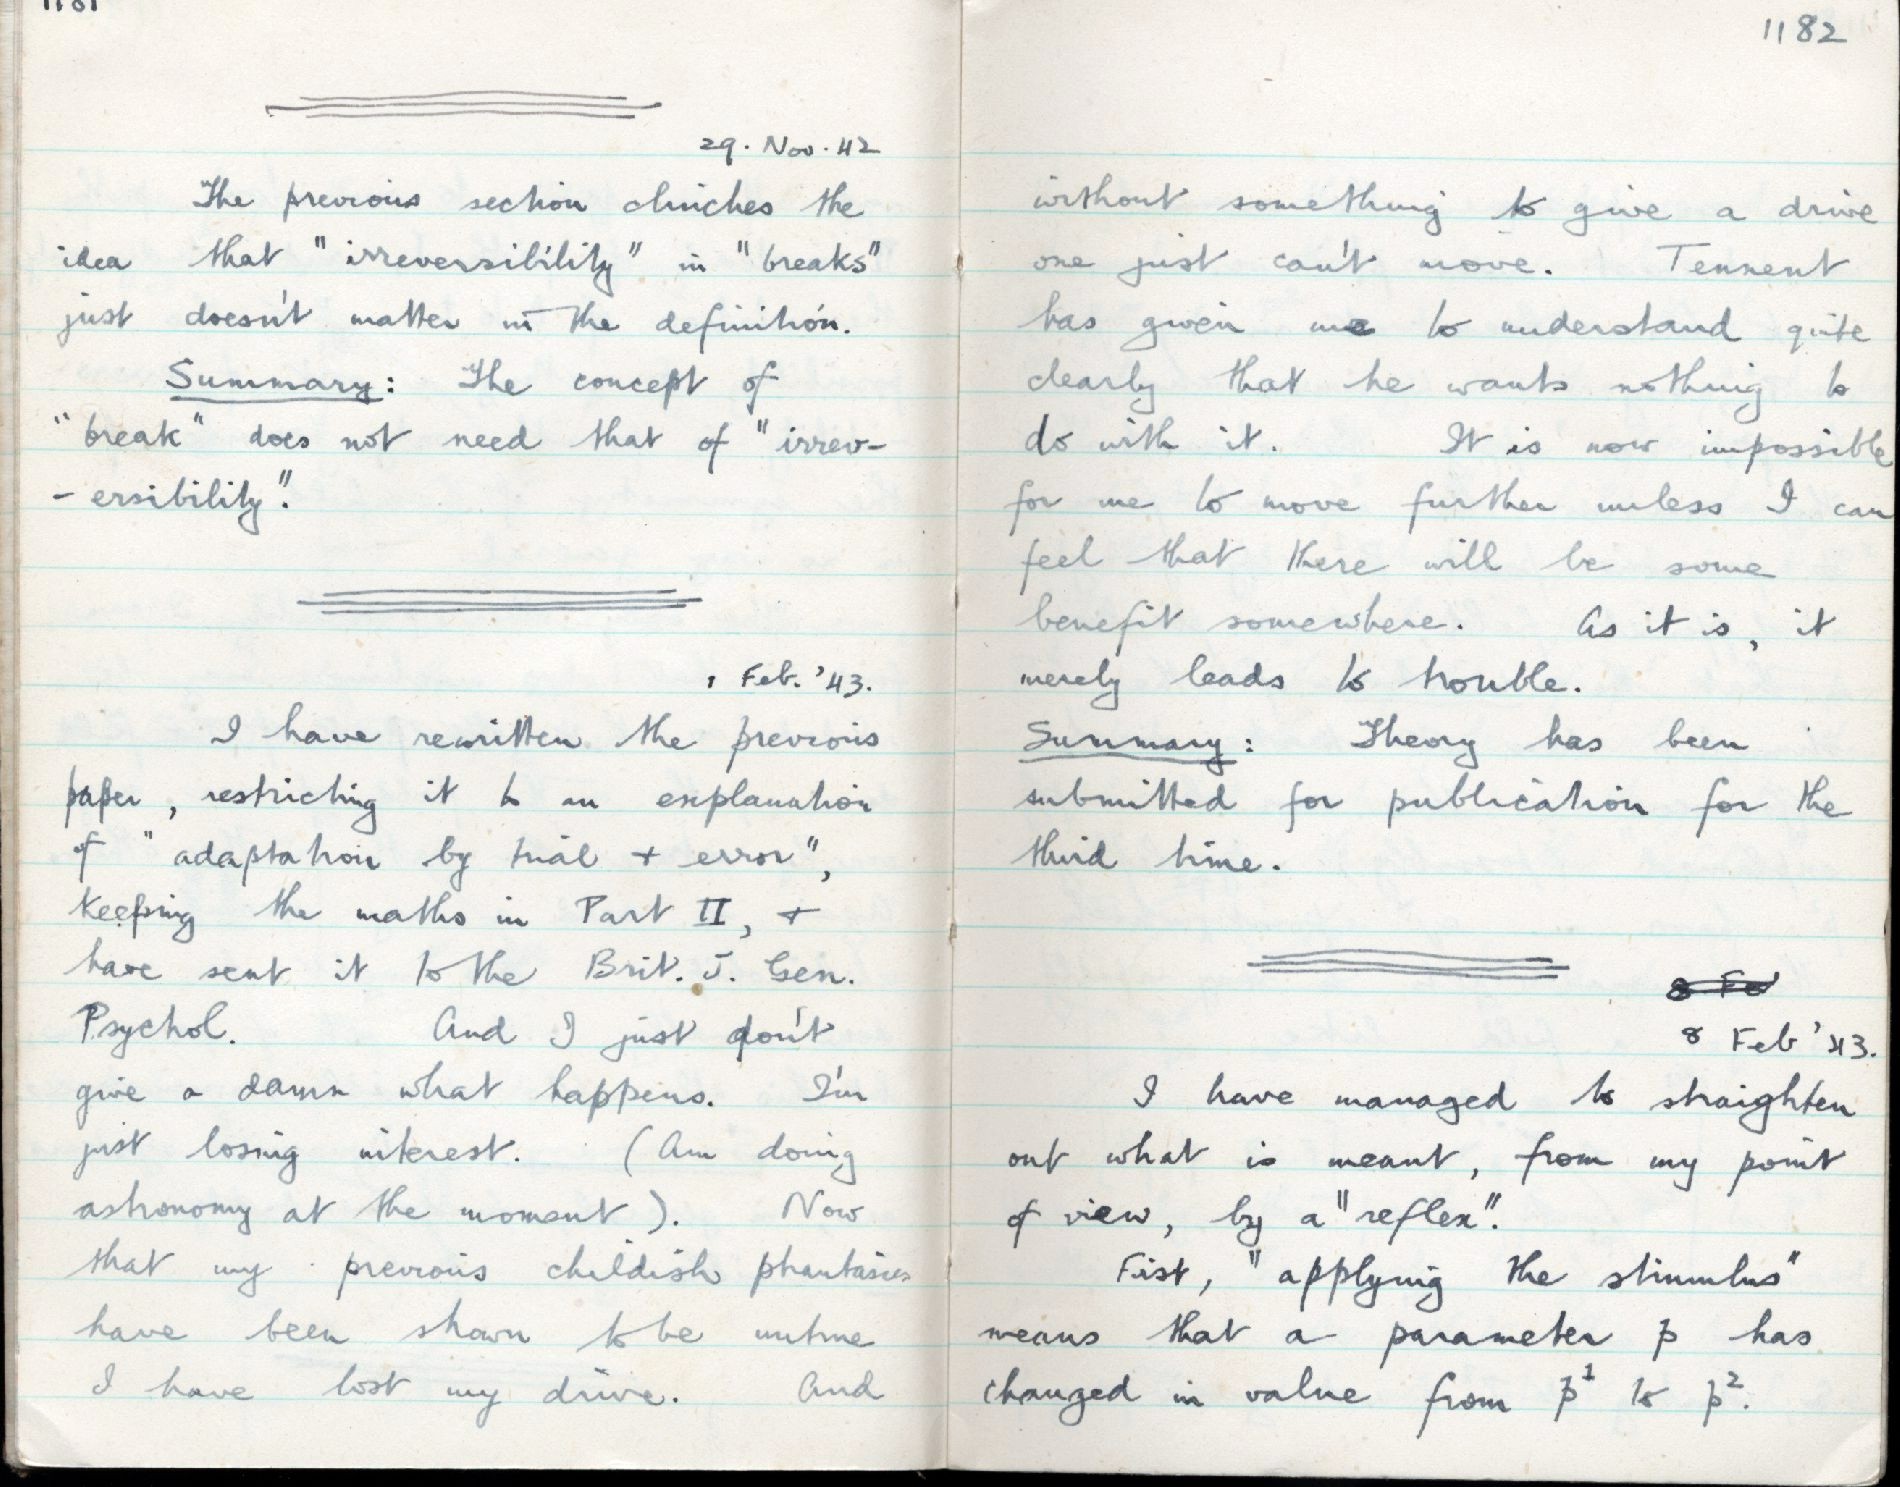 1181
29. Nov. 42
The previous section clinches the
idea that "irreversibility" in "breaks"
just doesn't matter in the definition.
Summary: The concept of
"break" does not need that of "irrev-
-ersibility".
1 Feb. '43.
I have rewritten the previous
paper, restricting it to an explanation
of "adaptation by trial + error",
keeping the maths in Part II, +
have sent it to the Brit. J. Gen.
Psychol. And I just don't
give a damn what happens. I'm
just losing interest. (Am doing
astronomy at the moment). Now
that my previous childish phantasies
have been shown to be untrue
I have lost my drive. And
1182
without something to give a drive
one just can't move. Tennent
has given me to understand quite
clearly that he wants nothing to
do with it. It is now impossible
for me to move further unless I can
feel that there will be some
benefit somewhere. As it is, it
merely leads to trouble.
Summary: Theory has been
submitted for publication for the
third time.
8 Fe
8 Feb '43.
I have managed to straighten
out what is meant, from my point
of view, by a "reflex".
Fist, "applying the stimulus"
means that a parameter p has
changed in value from p¹ to p².